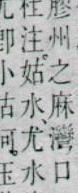 膠州之麻灣口
柱注姑水尤水
即小沽河